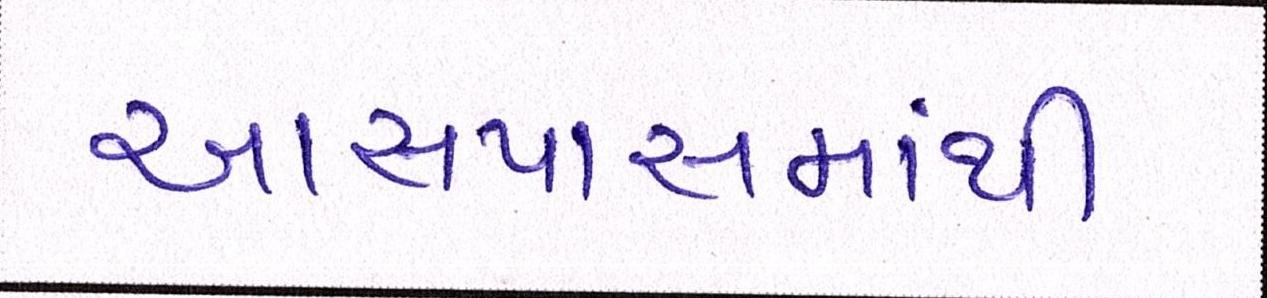 આસપાસમાંથી